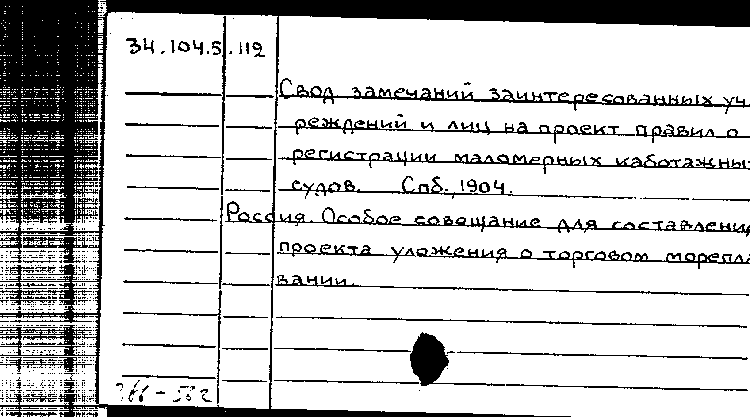 34.104.5.112
Свод замечаний заинтересованных уч
реждений и лиц на проект правил о
регистрации маломерных каботажны
судов. Спб., 1904.
Россия. Особое совещание для составлени
проекта уложения о торговом морепла
вании.